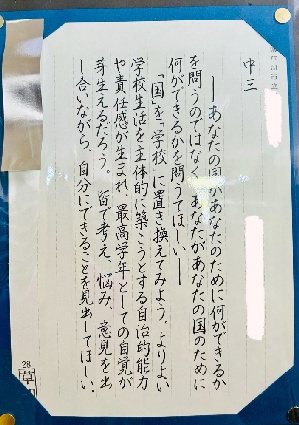 中三
――あなたの国があなたのために何ができるか
を問うのではなく、あなたがあなたの国のために
何ができるかを問うてほしい――
「国」を「学校」に置き換えてみよう。よりよい
学校生活を主体的に築こうとする自治的能力
や責任感が生まれ、最高学年としての自覚が
芽生えるだろう。皆で考え、悩み、意見を出
し合いながら、自分にできることを見出してほしい。
28
草